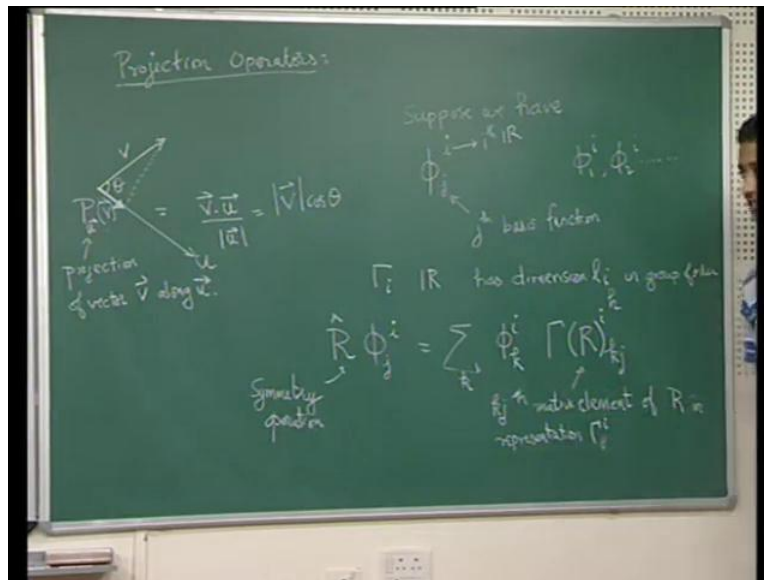 Projection Operators:
V
θ
P_u(V) = V⃗.u⃗ / |u⃗| = |V⃗| cosθ
u
projection
of vector V⃗ along u⃗.
Suppose we have
ϕ_j^i → i^th IR
ϕ_1^i, ϕ_2^i ......
j^th basis function
Γ_i IR has dimension l_i h group order
R̂ ϕ_j^i = Σ_k ϕ_k^i Γ(R)^i_kj
Symmetry
operation
kj^th matrix element of R in
representation Γ^i